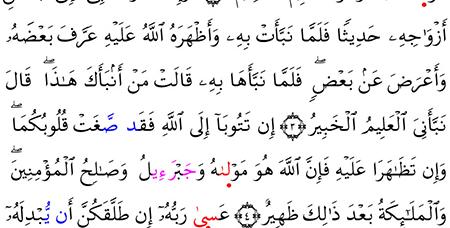 أَزْوَٰجِهِۦ حَدِيثًا فَلَمَّا نَبَّأَتْ بِهِۦ وَأَظْهَرَهُ ٱللَّهُ عَلَيْهِ عَرَّفَ بَعْضَهُۥ
وَأَعْرَضَ عَنۢ بَعْضٍ ۖ فَلَمَّا نَبَّأَهَا بِهِۦ قَالَتْ مَنْ أَنۢبَأَكَ هَٰذَا ۖ قَالَ
نَبَّأَنِىَ ٱلْعَلِيمُ ٱلْخَبِيرُ ﴿٣﴾ إِن تَتُوبَآ إِلَى ٱللَّهِ فَقَد صَّغَتْ قُلُوبُكُمَا ۖ
وَإِن تَظَـٰهَرَا عَلَيْهِ فَإِنَّ ٱللَّهَ هُوَ مَوْلَىٰهُ وَجَبْرَءِيلُ وَصَـٰلِحُ ٱلْمُؤْمِنِينَ ۖ
وَٱلْمَلَـٰٓئِكَةُ بَعْدَ ذَٰلِكَ ظَهِيرٌ ﴿٤﴾ عَسَىٰ رَبُّهُۥٓ إِن طَلَّقَكُنَّ أَن يُّبْدِلَهُۥٓ